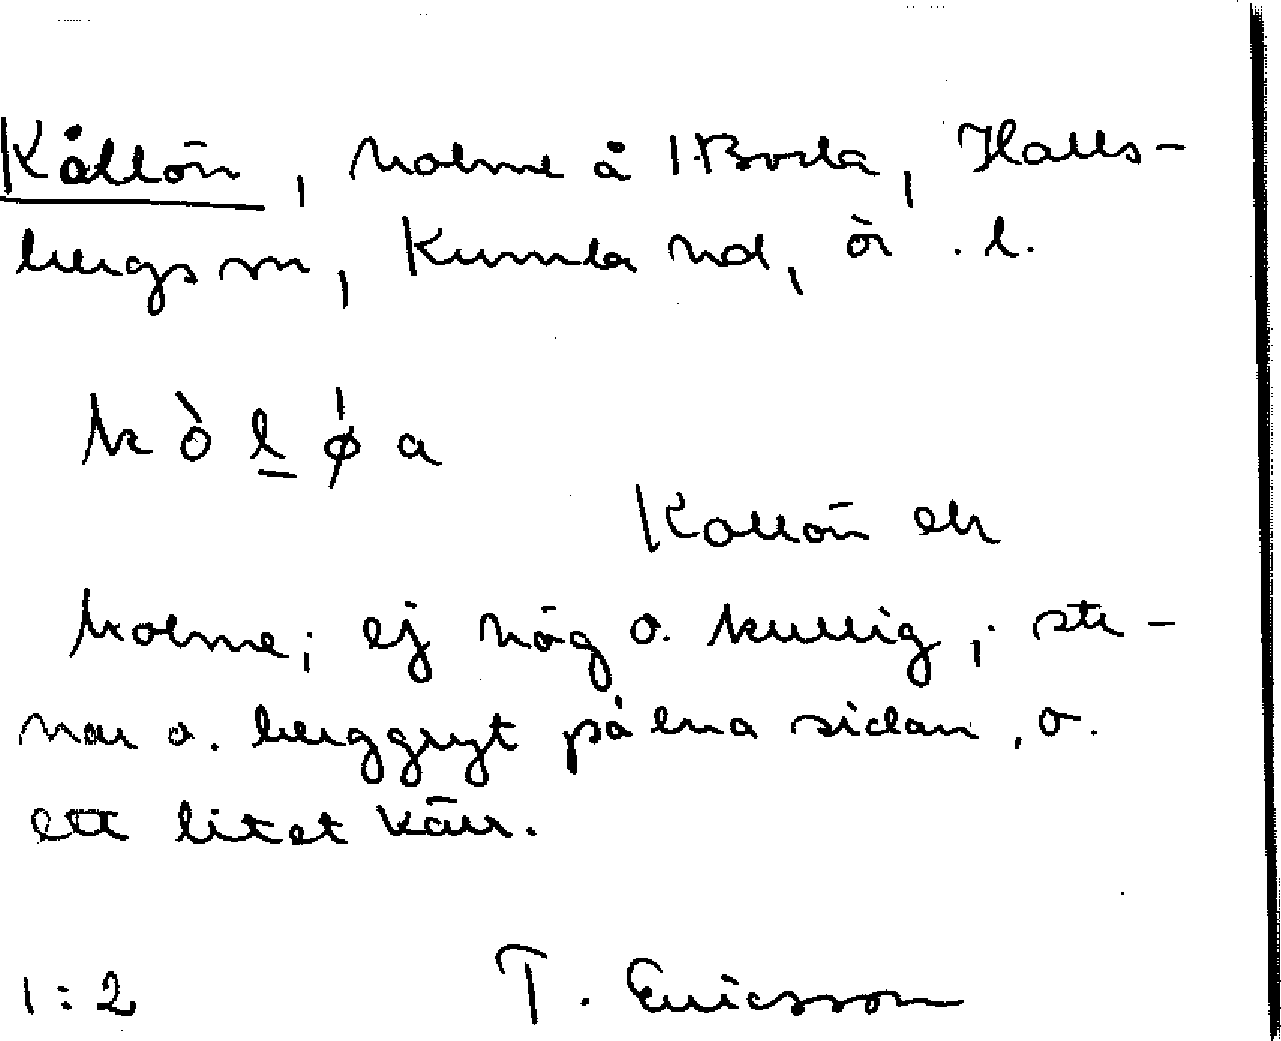 Kållön, holme å 1.Boda, Halls-
bergs sn, Kumla hd, ör. l.
k ò l ø a
Kallön el
holme; ej hög o. kullig; ste-
nar o. berggryt på ena sidan, o.
ett litet kärr.
1:2 T. Ericsson